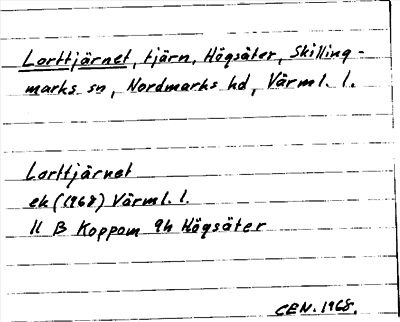 Lorttjärnet, tjärn, Högsäter, Skilling-
marks sn, Nordmarks hd, Värml. l.
Lorttjärnet
ek (1968) Värml. l.
11 B Koppom 9h Högsäter
CEN. 1968.